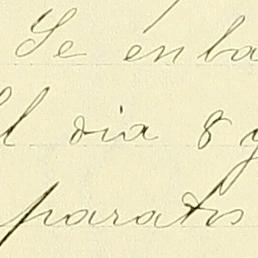 Se enba
El dia 8 y
paratos